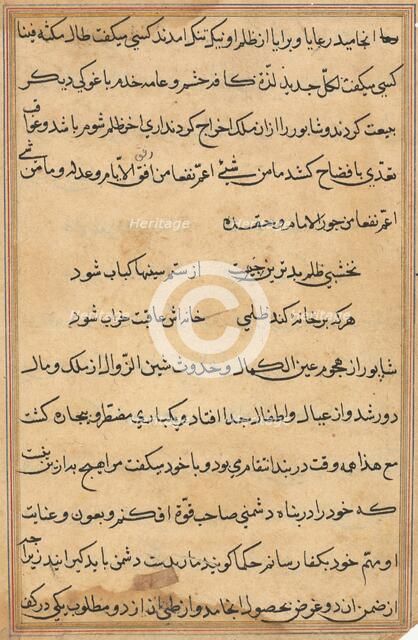 انجامید رعایا و برایا از ظلم او بیک تنک امدند کسی میکفت طال مکثه فینا
کسی میکفت لکل جدید لذة کافر خشم و عامه خدم با غوکی دیکر
بیعت کردند و شاپور را از ان ملک اخراج کردند اری اخر ظلم شوم باشد و عواقب
تعدی بافضاح کشد ما من شیٔ اعم نفعا من رفق الامام و عدله و ما من شی
اعم نفعا من جور الامام و
نخشبی ظلم بدترین از ستم سینها کباب شود
هر که بر خانه کند ظلمی خانه اش عاقبت خراب شود
شاپور از هجوم عین الکمال و حدوث شین الزوال از ملک و مال
دور شد و از عیال و اطفال جدا افتاد و یکبارکی مضطر و بیچاره کشت
مع هذا هر وقت در بند انتقام می بود و با خود میکفت مرا هیچ به از این نیست
که خود را در پناه دشمنی صاحب قوة افکنم و بعون و عنایت
او مهم خود بکفا رسانم حکما کویند مار بدست دشمن باید کیرانید زیرا چه
از ضمن ان دو غرض بحصول انجامد و از طی ان از دو مطلوب یکی در کف
Heritage
Heritage
Heritage
Heritage